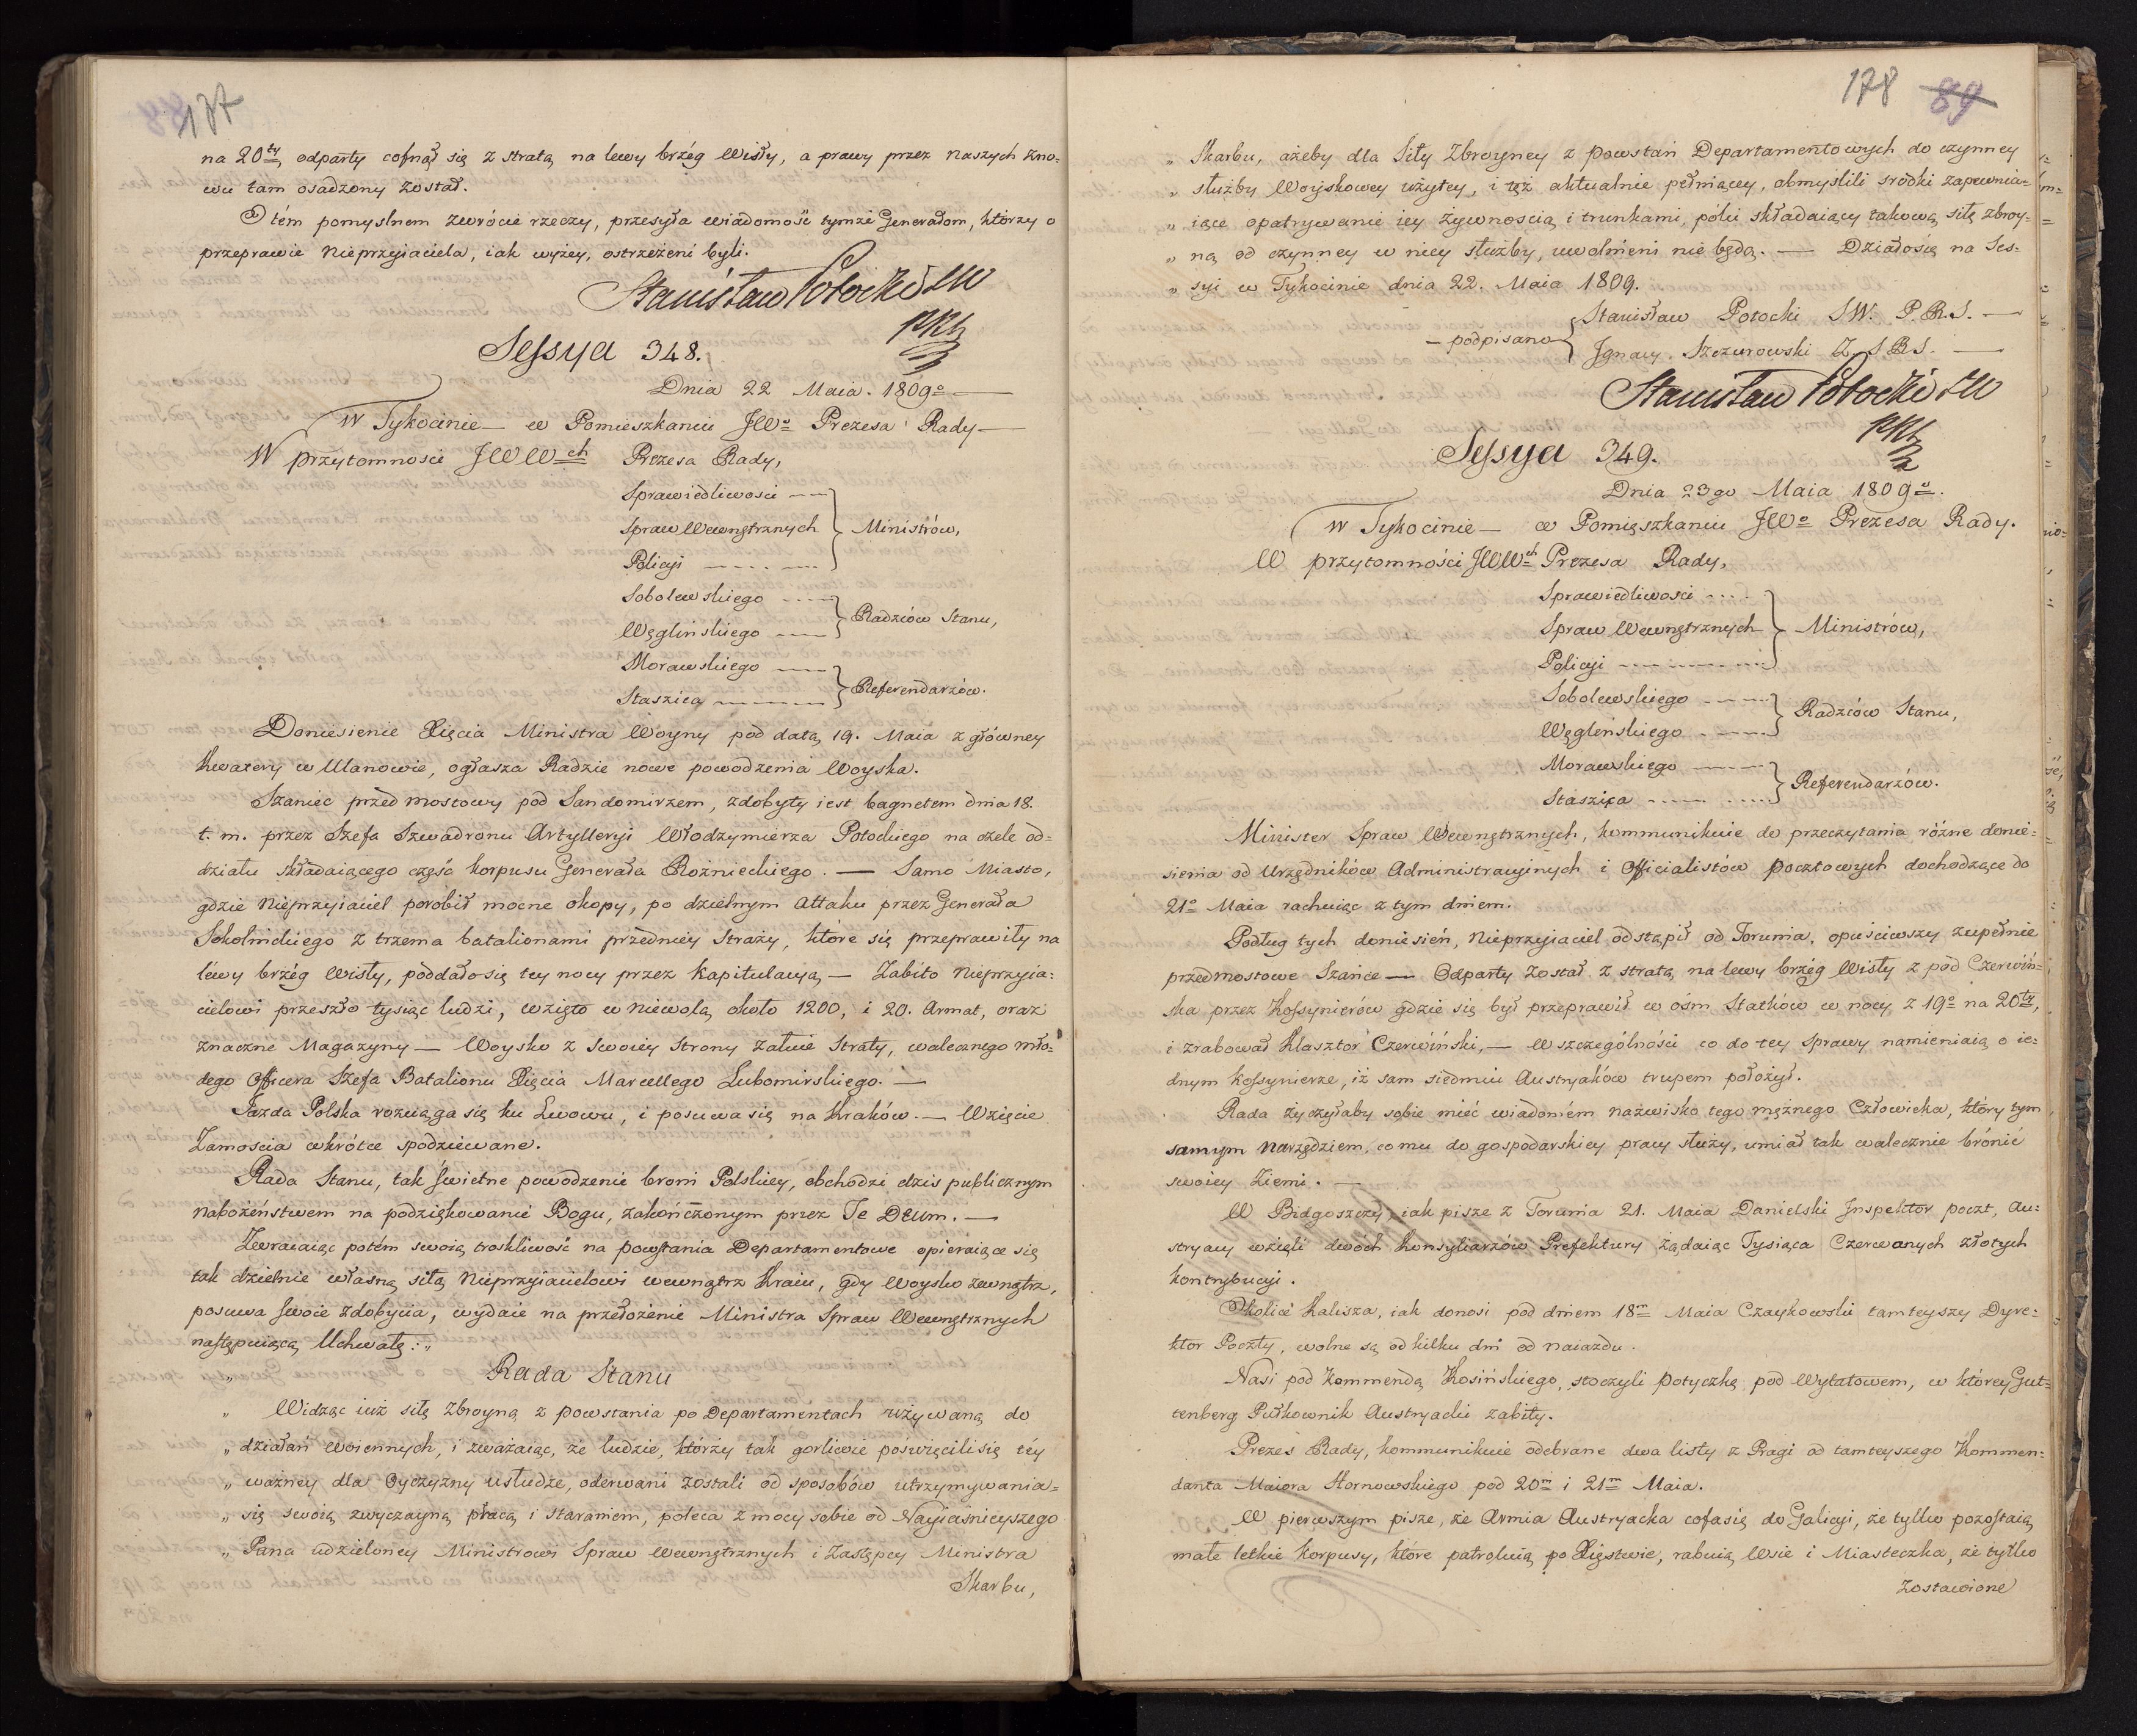 177
na 20ty odparty cofnął się z stratą na lewy brzég Wisły, a prawy przez naszych zno=
wu tam osadzony został.
O tém pomyslnem zwrócie rzeczy, przesyła wiadomość tymże Generałom, którzy o
przeprawie Nieprzyiaciela, iak wyżey, ostrzeżeni byli.
Stanisław Potocki SW
PRS
Sessya 348.
Dnia 22 Maia. 1809o
W Tykocinie — w Pomieszkaniu JWo Prezesa Rady —
W przytomnosci JWWch Prezesa Rady,
Sprawiedliwosci
Spraw Wewnętrznych } Ministrów,
Policyi
Sobolewskiego
Węglińskiego } Radzców Stanu,
Morawskiego
Staszica } Referendarzów.
Doniesienie Xięcia Ministra Woyny pod datą 19. Maia z główney
Kwatery w Ulanowie, ogłasza Radzie nowe powodzenia Woyska.
Szaniec przed mostowy pod Sandomirzem, zdobyty iest bagnetem dnia 18.
t. m. przez Szefa Szwadronu Artylleryi Włodzymierza Potockiego na czele od=
działu składaiącego część korpusu Generała Rożnieckiego. — Samo Miasto,
gdzie Nieprzyiaciel porobił mocne okopy, po dzielnym Attaku przez Generała
Sokolnickiego z trzema batalionami przedniey Straży, które się przeprawiły na
léwy brzég Wisły, poddało się tey nocy przez Kapitulacyą — Zabito Nieprzyia=
cielowi przeszło tysiąc ludzi, wzięto w niewolą około 1200, i 20. Armat, oraz
znaczne Magazyny — Woysko z swoiéy Strony żałuie Straty, walecznego mło=
dego Officera Szefa Batalionu Xięcia Marcellego Lubomirskiego. —
Jazda Polska rozciąga się ku Lwowu, i posuwa się na Kraków. — Wzięcie
Zamościa wkrótce spodziéwane.
Rada Stanu, tak swietne powodzenie broni Polskiey, obchodzi dzis publicznym
nabożeństwem na podziękowanie Bogu, zakończonym przez Te Deum. —
Zwracaiąc potém swoią troskliwość na powstania Departamentowe opieraiące się
tak dzielnie własną siłą Nieprzyiacielowi wewnątrz Kraiu, gdy Woysko zewnątrz,
posuwa swoie zdobycia, wydaie na przełożenie Ministra Spraw Wewnętrznych
następuiącą Uchwałę: „
„ Rada Stanu
„ Widząc iuż siłę Zbroyną z powstania po Departamentach używaną do
„ działań woiennych, i zważaiąc, że ludzie, którzy tak gorliwie poświęcili się téy
„ ważney dla Oyczyzny usłudze, oderwani zostali od sposobów utrzymywania=
„ się swoią zwyczayną pracą i staraniem, poleca z mocy sobie od Nayiaśnieyszego
„ Pana udzieloney Ministrowi Spraw Wewnętrznych i Zastępcy Ministra
Skarbu,
178 89
„ Skarbu, ażeby dla Siły Zbroyney z powstań Departamentowych do czynney
„ służby Woyskowey użytey, i tęż aktualnie pełniącey, obmyslili srodki zapewnia=
„ iące opatrywanie iey żywnoscią i trunkami, póki składaiący takową siłę zbroy=
„ ną od czynney w niey służby, uwolnieni nie będą. — Działo się na Ses=
„ syi w Tykocinie dnia 22. Maia 1809.
— podpisano { Stanisław Potocki SW. P.R.S. —
Jgnacy Szczurowski Z. S R S. —
Stanisław Potocki SW
PRS
Sessya 349.
Dnia 23go Maia 1809o.
W Tykocinie — w Pomięszkaniu JWo Prezesa Rady.
W przytomności JWWch Prezesa Rady,
Sprawiedliwosci
Spraw Wewnętrznych } Ministrów,
Policyi
Sobolewskiego
Węglińskiego } Radzców Stanu,
Morawskiego
Staszica } Referendarzów.
Minister Spraw Wewnętrznych, kommunikuie do przeczytania różne donie=
sienia od Urzędników Administracyinych i Officialistów pocztowych dochodzące do
21o Maia rachuiąc z tym dniem.
Podług tych doniesień, Nieprzyiaciel odstąpił od Torunia, opuściwszy zupełnie
przedmostowe Szańce — Odparty został z stratą na lewy brzég Wisły z pod Czerwiń=
ska przez Kossynierów gdzie się był przeprawił w ośm Statków w nocy z 19o na 20ty,
i zrabował Klasztór Czerwiński, — W szczególności co do tey sprawy namieniaią o ie=
dnym kossynierze, iż sam siedmiu Austryaków trupem położył.
Rada życzyłaby sobie mieć wiadomém nazwisko tego mężnego Człowieka, który tym
samym narzędziem, co mu do gospodarskiey pracy służy, umiał tak walecznie brónić
swoiey Ziemi. —
W Bidgoszczy, iak pisze z Torunia 21. Maia Danielski Jnspektor poczt, Au=
stryacy wzięli dwóch Konsyliarzów Prefektury żądaiąc Tysiąca Czerwonych złotych
kontrybucyi.
Okolice Kalisza, iak donosi pod dniem 18m Maia Czaykowski tamteyszy Dyre=
ktor Poczty, wolne są od kilku dni od naiazdu.
Nasi pod kommendą Kosińskiego, stoczyli potyczkę pod Wylatowem, w którey Gut=
tenberg Pułkownik Austryacki zabity.
Prezes Rady, kommunikuie odebrane dwa listy z Pragi od tamteyszego Kommen=
danta Maiora Hornowskiego pod 20m i 21m Maia.
W pierwszym pisze, że Armia Austryacka cofa się do Galicyi, że tylko pozostaią
małe letkie korpusy, które patroluią po Xięstwie, rabuią Wsie i Miasteczka, że tylko
zostawione